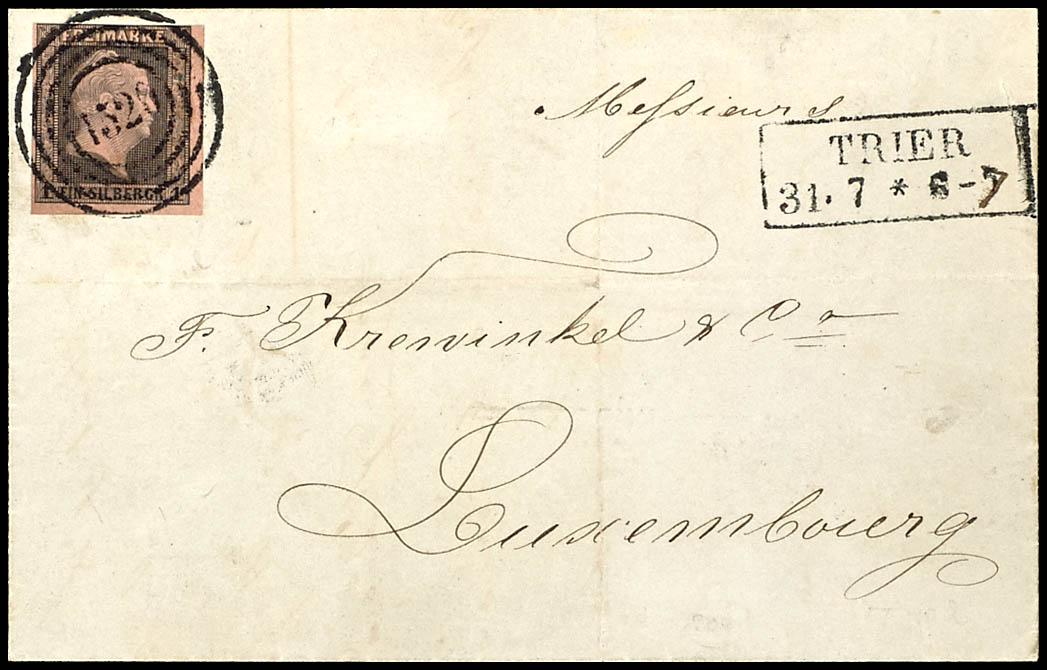 FREIMARKE
1522
1 EIN SILBERGR. 1
Messieurs
TRIER
31. 7 * 6-7
F. Krewinkel & Co
Luxembourg